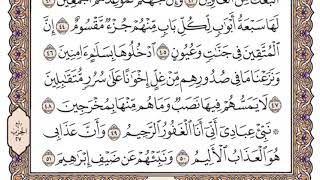 ٱتَّبَعَكَ مِنَ ٱلْغَاوِينَ ٤٢ وَإِنَّ جَهَنَّمَ لَمَوْعِدُهُمْ أَجْمَعِينَ ٤٣
لَهَا سَبْعَةُ أَبْوَٰبٍ لِّكُلِّ بَابٍ مِّنْهُمْ جُزْءٌ مَّقْسُومٌ ٤٤ إِنَّ
ٱلْمُتَّقِينَ فِى جَنَّٰتٍ وَعُيُونٍ ٤٥ ٱدْخُلُوهَا بِسَلَٰمٍ ءَامِنِينَ ٤٦
وَنَزَعْنَا مَا فِى صُدُورِهِم مِّنْ غِلٍّ إِخْوَٰنًا عَلَىٰ سُرُرٍ مُّتَقَٰبِلِينَ
٤٧ لَا يَمَسُّهُمْ فِيهَا نَصَبٌ وَمَا هُم مِّنْهَا بِمُخْرَجِينَ ٤٨
۞ نَبِّئْ عِبَادِىٓ أَنِّىٓ أَنَا ٱلْغَفُورُ ٱلرَّحِيمُ ٤٩ وَأَنَّ عَذَابِى
هُوَ ٱلْعَذَابُ ٱلْأَلِيمُ ٥٠ وَنَبِّئْهُمْ عَن ضَيْفِ إِبْرَٰهِيمَ ٥١
ربع
الحزب
٢٧